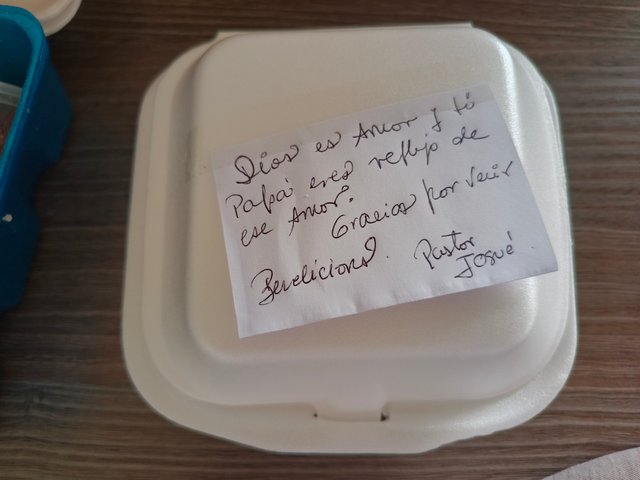 Dios es Amor y tú
Papá eres reflejo de
ese Amor.
Gracias por venir
Bendiciones.
Pastor
Josué.